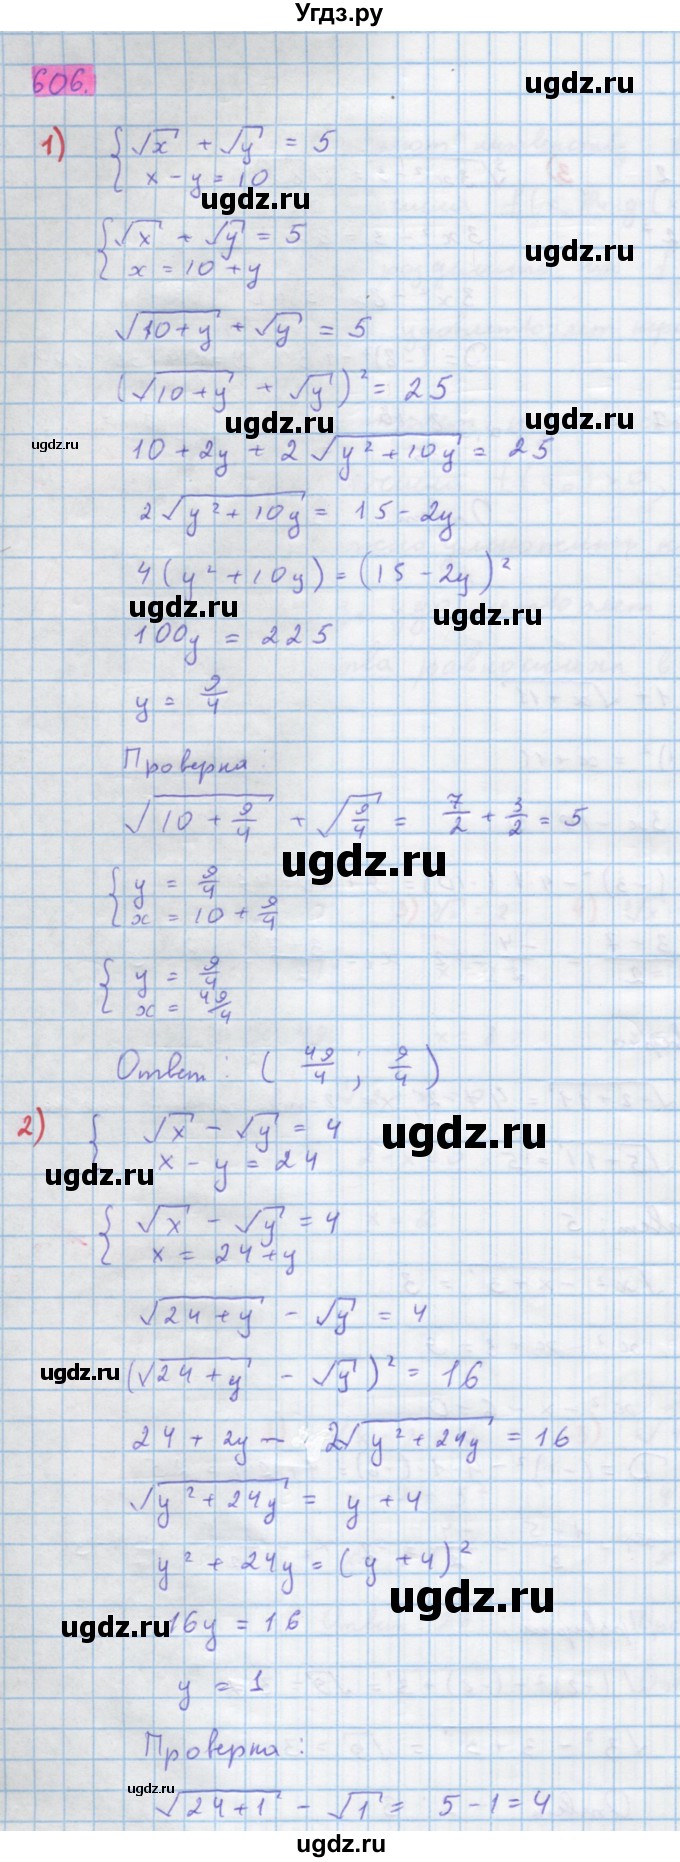 Угдз.ру
606.
ugdz.ru
1) { √x + √y = 5
x - y = 10
ugdz.ru
{ √x + √y = 5
ugdz.ru
x = 10 + y
√(10 + y) + √y = 5
(√(10 + y) + √y)² = 25
ugdz.ru
ugdz.ru
ugdz.ru
10 + 2y + 2√(y² + 10y) = 25
2√(y² + 10y) = 15 - 2y
4(y² + 10y) = (15 - 2y)²
ugdz.ru
ugdz.ru
100y = 225
y = 9/4
Проверка
√(10 + 9/4) + √(9/4) = 7/2 + 3/2 = 5
ugdz.ru
{ y = 9/4
x = 10 + 9/4
{ y = 9/4
x = 49/4
Ответ: (49/4; 9/4)
2) { √x - √y = 4
ugdz.ru
x - y = 24
ugdz.ru
{ √x - √y = 4
x = 24 + y
√(24 + y) - √y = 4
ugdz.ru
(√(24 + y) - √y)² = 16
24 + 2y - 2√(y² + 24y) = 16
√(y² + 24y) = y + 4
y² + 24y = (y + 4)²
ugdz.ru
ugdz.ru
16y = 16
y = 1
Проверка:
ugdz.ru
√(24 + 1) - √1 = 5 - 1 = 4
ugdz.ru